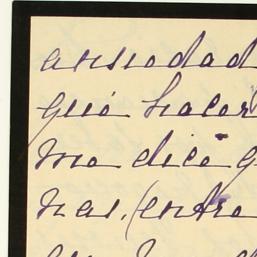 ansiedad
qué hacer
me dice q
nas, (entre